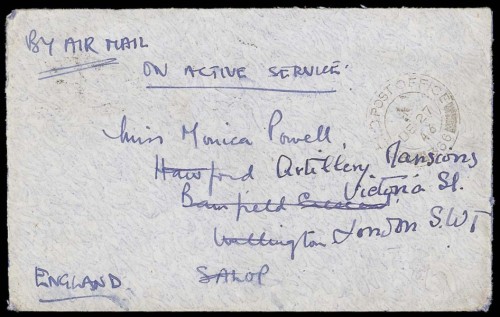 BY AIR MAIL
ON ACTIVE SERVICE.
POST OFFICE
27
Miss Monica Powell,
Hawford Artillery Mansions
Victoria St.
Bamfield Crescent
Wellington London S.W1
ENGLAND. SALOP